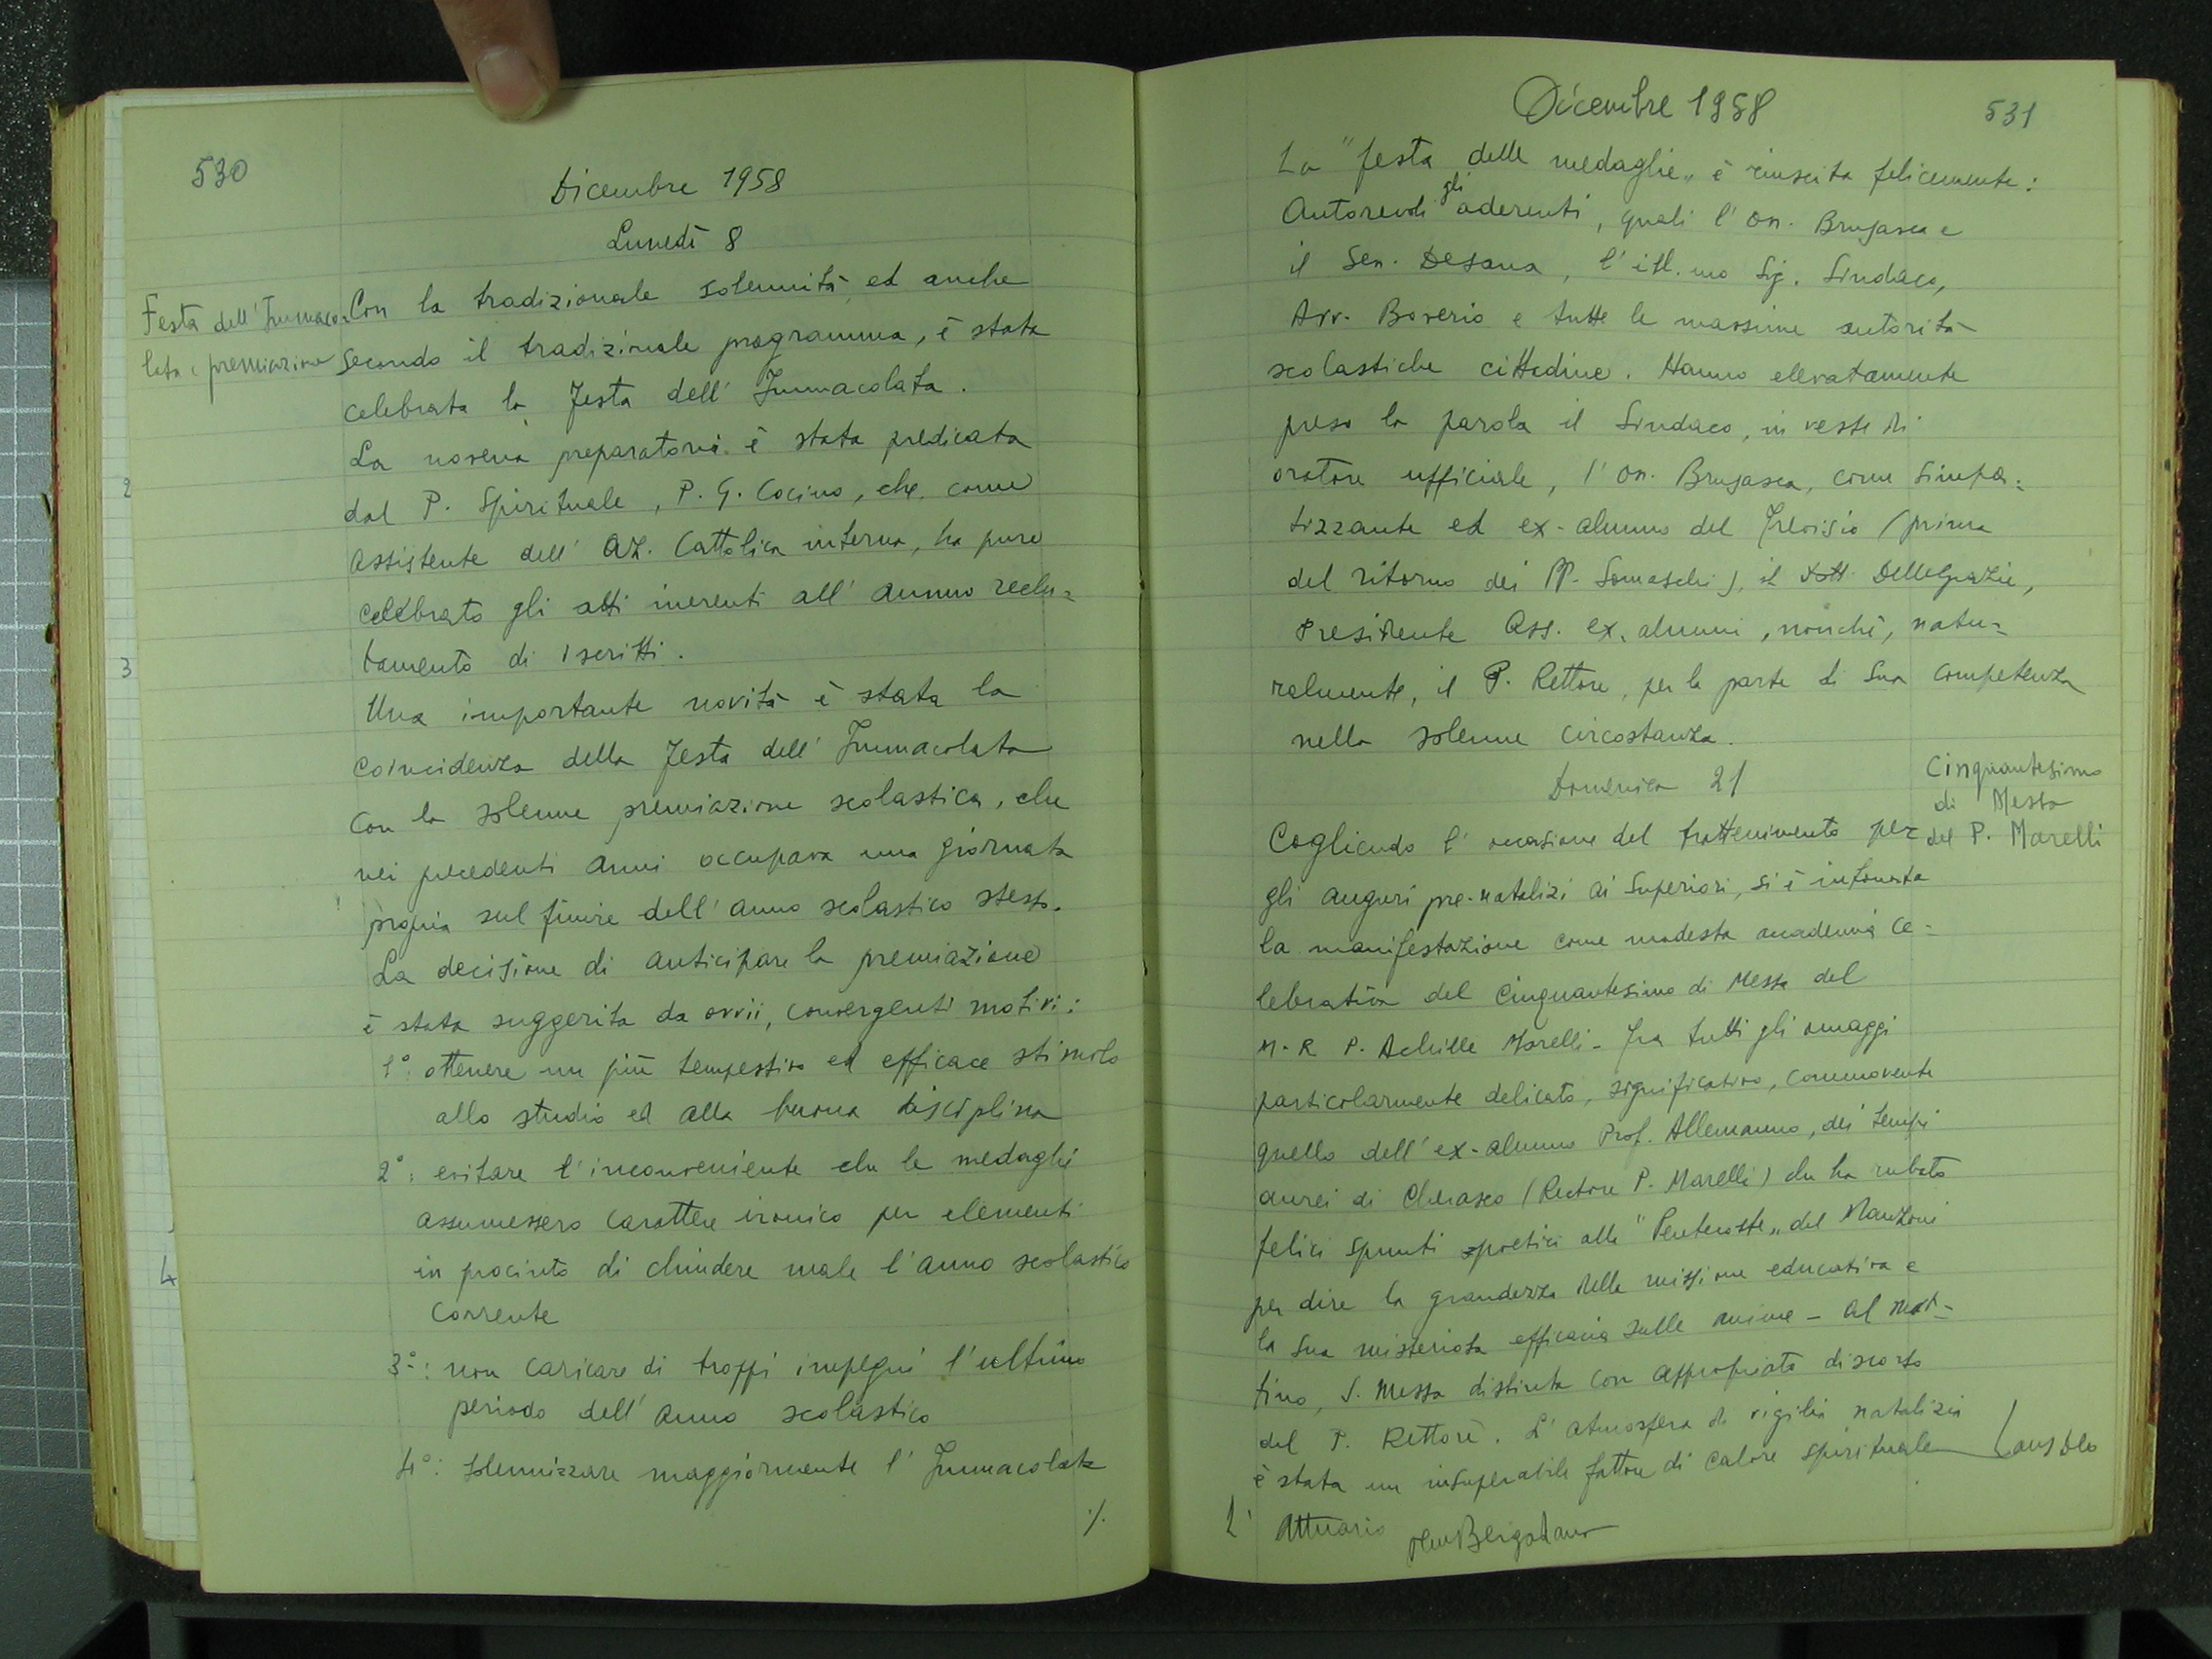 530
Dicembre 1958
Lunedì 8
Festa dell'Immaco=
lata e premiazione
Con la tradizionale solennità ed anche
secondo il tradizionale programma, è stata
celebrata la festa dell'Immacolata.
La novena preparatoria è stata predicata
dal P. Spirituale, P. G. Cocino, che, come
Assistente dell'Az. Cattolica interna, ha pure
celebrato gli atti inerenti all'annuo reclu=
tamento di iscritti.
Una importante novità è stata la
coincidenza della festa dell'Immacolata
con la solenne premiazione scolastica, che
nei precedenti anni occupava una giornata
propria sul finire dell'anno scolastico stesso.
La decisione di anticipare la premiazione
è stata suggerita da ovvii, convergenti motivi:
1°: ottenere un più tempestivo ed efficace stimolo
allo studio ed alla buona disciplina
2°: evitare l'inconveniente che le medaglie
assumessero carattere ironico per elementi
in procinto di chiudere male l'anno scolastico
corrente
3°: non caricare di troppi impegni l'ultimo
periodo dell'anno scolastico
4°: solennizzare maggiormente l'Immacolata
./.
2
3
4
Dicembre 1958
531
La "festa delle medaglie" è riuscita felicemente:
Autorevoli gli aderenti, quali l'On. Brusasca e
il Sen. Desana, l'ill.mo Sig. Sindaco,
Avv. Boverio e tutte le massime autorità
scolastiche cittadine. Hanno elevatamente
preso la parola il Sindaco, in veste di
oratore ufficiale, l'On. Brusasca, come simpa=
tizzante ed ex-alunno del Trevisio (prima
del ritorno dei PP. Somaschi), il Dott. DelleGrazie,
Presidente Ass. ex. alunni, nonché, natu=
ralmente, il P. Rettore, per la parte di sua competenza
nella solenne circostanza.
Domenica 21
Cinquantesimo
di Messa
del P. Marelli
Cogliendo l'occasione del trattenimento per
gli auguri pre-natalizi ai Superiori, si è intonata
la manifestazione come modesta accademia ce=
lebrativa del Cinquantesimo di Messa del
M. R. P. Achille Marelli - Fra tutti gli omaggi
particolarmente delicato, significativo, commovente
quello dell'ex-alunno Prof. Allemanno, dei tempi
aurei di Cherasco (Rettore P. Marelli) che ha rubato
felici spunti poetici alla "Pentecoste" del Manzoni
per dire la grandezza della missione educativa e
la sua misteriosa efficacia sulle anime - Al mat-
tino, S. Messa distinta con appropriato discorso
del P. Rettore. L'atmosfera di vigilia natalizia
è stata un insuperabile fattore di calore spirituale
Laus Deo
L'Attuario